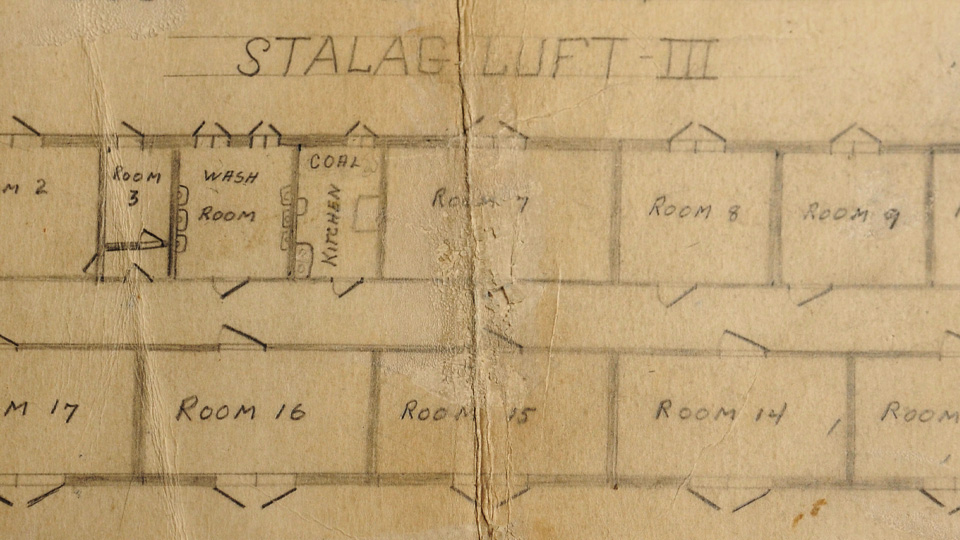 STALAG LUFT-III
M 2
ROOM
3
WASH
ROOM
COAL
KITCHEN
ROOM 7
ROOM 8
ROOM 9
M 17
ROOM 16
ROOM 15
ROOM 14
ROOM